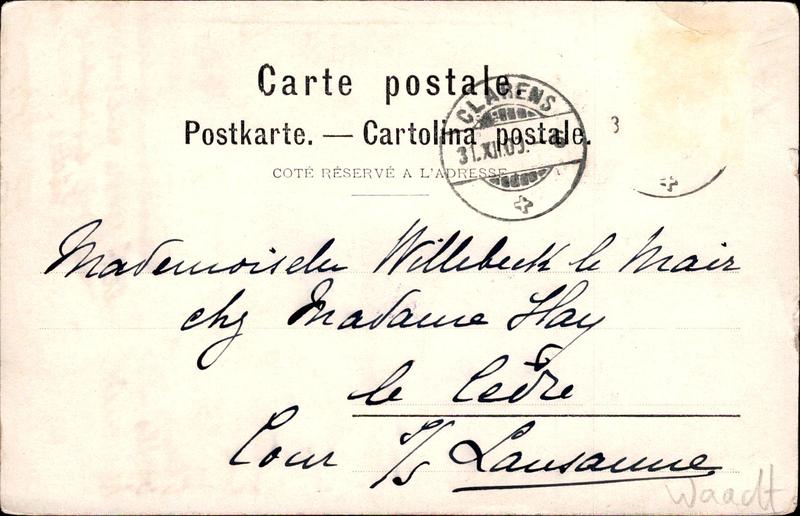 Carte postale.
Postkarte. — Cartolina postale.
COTÉ RÉSERVÉ A L'ADRESSE
CLARENS
31.XII.03.
3
Mademoiselle Willebeek le Mair
chz Madame Hay
le Cèdre
Cour s/s Lausanne
Waadt